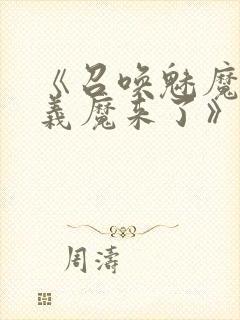 《召唤魅魔
义魔来了》
周濤